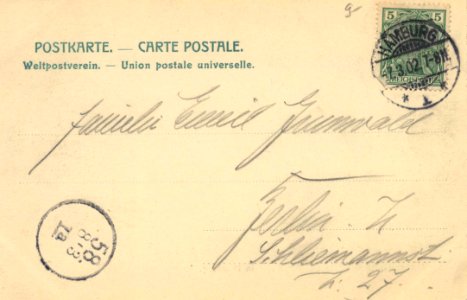 POSTKARTE. — CARTE POSTALE.
Weltpostverein. — Union postale universelle.
5 5
HAMBURG
1.3.02. 7-8N.
* 1 *
Familie Emil Grunwald
Berlin N
Schliemannst
27.
58
8-3